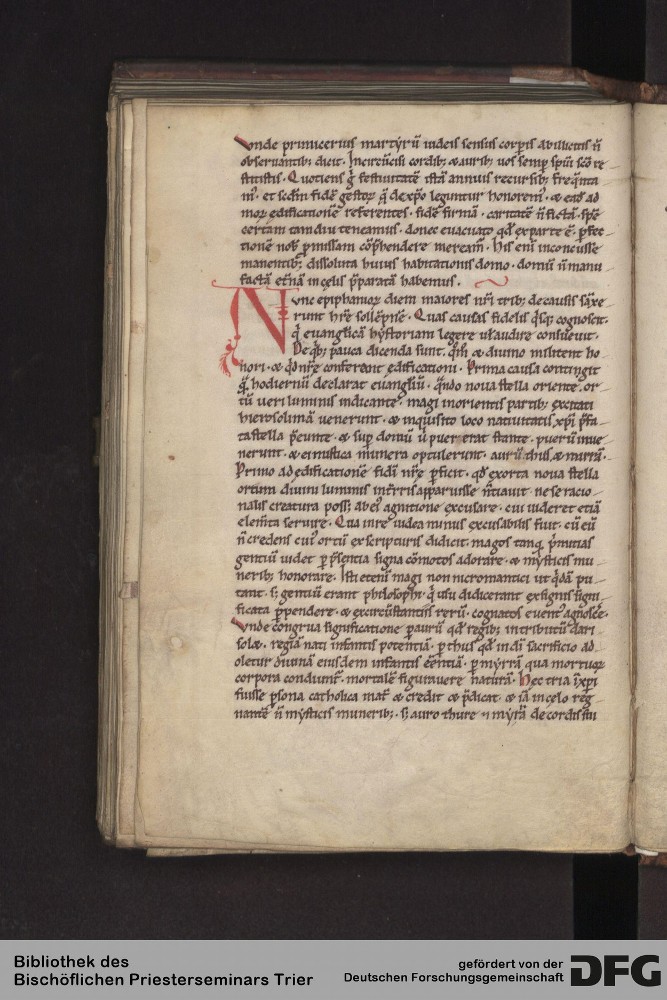 Unde primicerius martyrū iudeis sensus corp̄is abilicitis n̄
observantib; dicit. Incircūcisi cordib; & aurib; vos semp spūi scō re
stitistis. Quotiens g̊ festivitatē istā annuis recursib; freq̄nta
m᷒. et scdm fidē gestoꝝ q̄ de xp̄o leguntur honorem᷒. & ead ad
moꝝ edificationē referentes. fidē firmā. caritatē n̄ fictā. spē
certam tam diu teneamus. donec evacuato qđ ex parte ē. p̄fec
tionē nob̄ p̄missam cōp̄hendere meream̄. His eni inconcusse
manentib; dissoluta huius habitationis domo. domū n̄ manu
factā et̄nā in celis p̄paratā habemus.
Nunc epiphanioꝝ diem maiores nr̄i trib; de causis sāxe
runt hr̄e sollēpnē. Quas causas fidelis q̄sq; cognoscit.
q̄ evangelicā hystoriam legere ul̄ audire consuevit.
De q̄b; pauca dicenda sunt. qm̄ & divino militent ho
nori. & qđ nr̄e conferant edificationi. Prima causa contingit
q̄ hodiernū declarat evangliū. q̄ndo nova stella oriente. or
tū veri luminis indicante. magi in orientis partib; excitati
hierosolimā venerunt. & inquisito loco nativitatis xp̄i p̄fa
ta stella p̄eunte. & sup domū ū puer erat stante. puerū inve
nerunt. & ei mistica munera optulerunt. aurū thus & mirrā.
Primo ad edificationē fidei nr̄e p̄ficit. qđ exorta nova stella
ortum divini luminis in t̄rris apparuisse n̄tiavit. ne se racio
nalis creatura poss; ab ei᷒ agnitione excusare. cui videret etiā
elem̄ta servire. Qua in re iudea minus excusabilis fiut. cū eū
n̄ credens cui᷒ ortū ex scripturis didicit. magos tanq̄ p̄mitias
gentiū videt p̱ p̄sentia signa cōmotos adorare. & mysticis mu
nerib; honorare. Isti etenī magi non nicromantici ut q̄dā pu
tant. s; gentiū erant philosophi. q̄ usu didicerant ex signis signi
ficata p̄pendere. & ex circūstantiis rerū. cognatos event᷒ agnosc̄e.
Unde congrua significatione p̱ aurū qđ regib; in tributū dari
sol&. regiā nati infantis potentiā. p̱ thus qđ in dī sacrificio ad
oletur divinā eiusdem infantis eēntiā. p̱ myrrā qua mortuoꝝ
corpora condiunt̄. mortalē figuravere naturā. Hec tria i xp̄i
fuisse p̱sona catholica mat̄ & credit & p̄dicat. & iā in celo reg
nantē n̄ mysticis munerib;. s; auro thure & myrā de cordis sui
Bibliothek des
Bischöflichen Priesterseminars Trier
gefördert von der
Deutschen Forschungsgemeinschaft
DFG